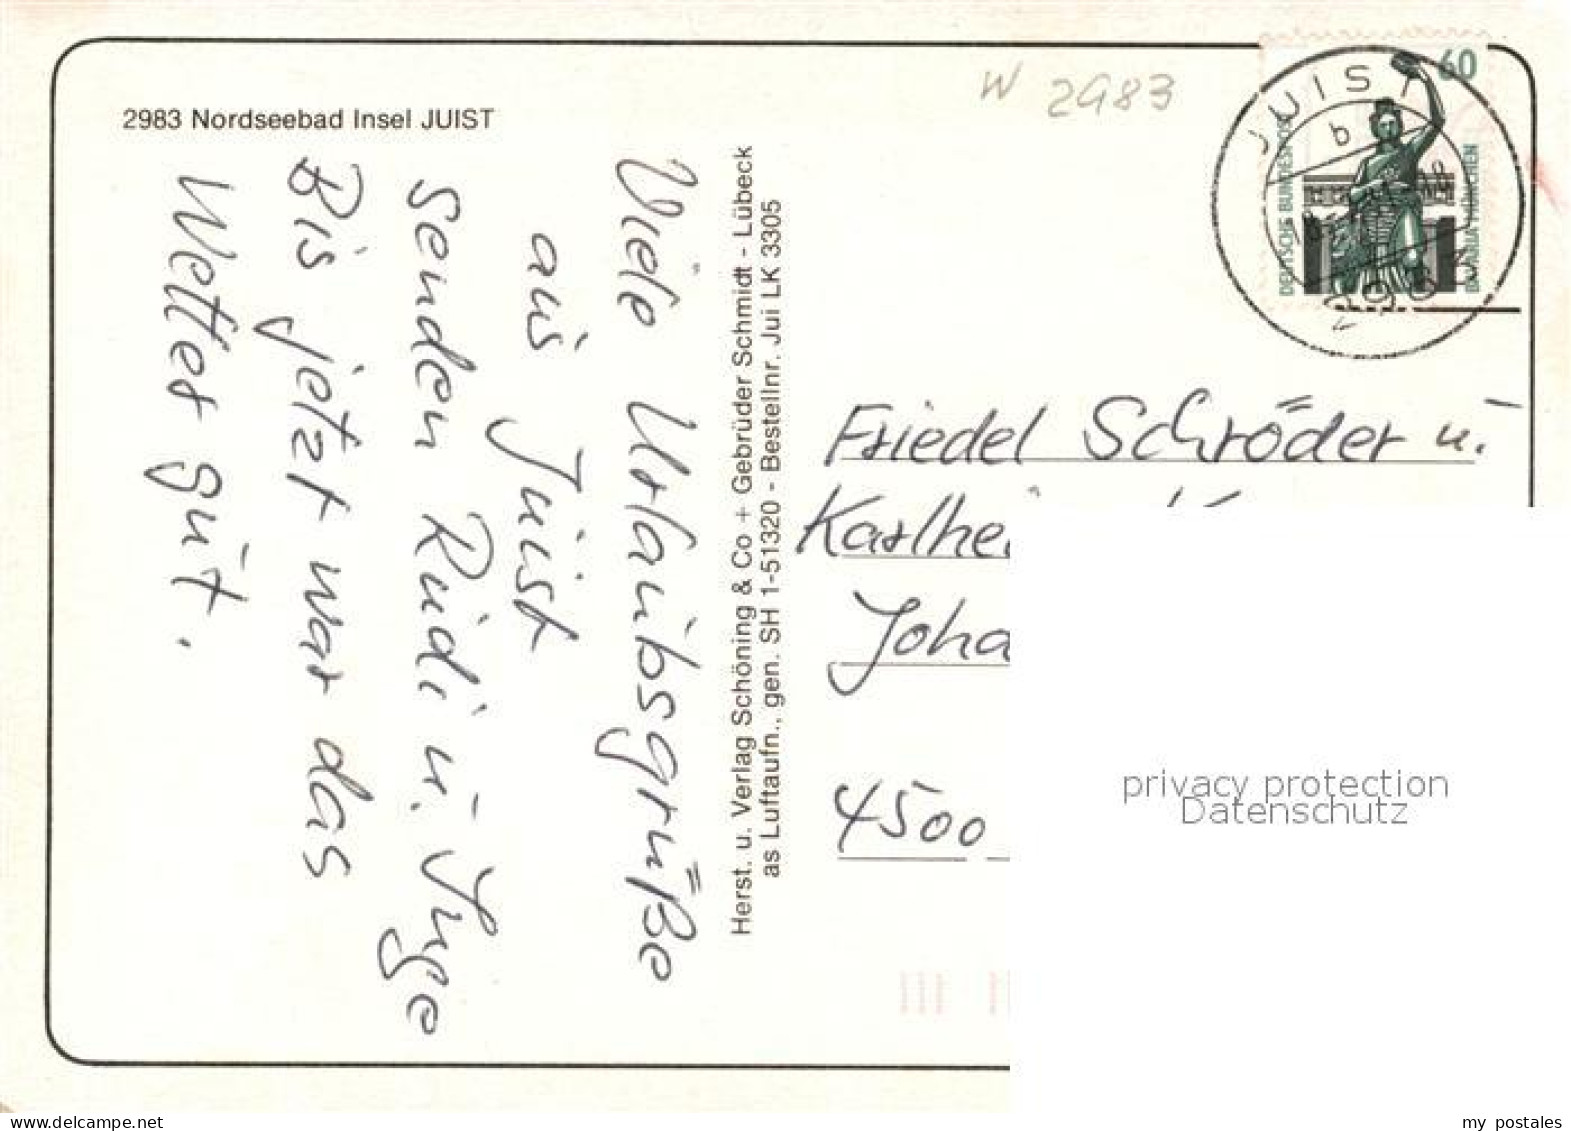 2983 Nordseebad Insel JUIST
W 2983
JUIST
b
2983
60
DEUTSCHE BUNDESPOST
BAVARIA MÜNCHEN
Viele Urlaubsgrüße
aus Juist
senden Rudi u. Inge
Bis jetzt war das
Wetter gut.
Herst. u. Verlag Schöning & Co + Gebrüder Schmidt - Lübeck
as Luftaufn., gen. SH 1-51320 - Bestellnr. Jui LK 3305
Friedel Schröder u.
Karlhei
Joha
4500
privacy protection
Datenschutz
www.delcampe.net
my_postales